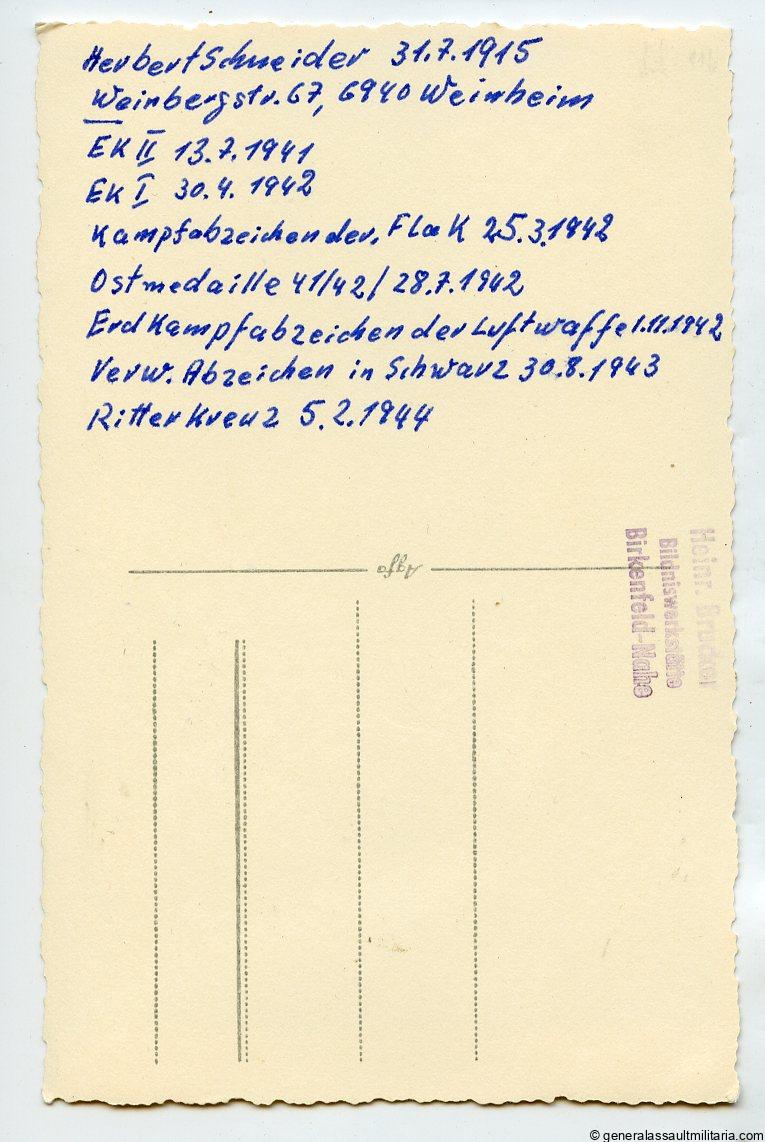 Herbert Schneider 31.7.1915
Weinbergstr. 67, 6940 Weinheim
EK II 13.7.1941
EK I 30.4. 1942
Kampfabzeichen der. Flak 25.3.1942
Ostmedaille 41/42/ 28.7.1942
Erdkampfabzeichen der Luftwaffe 1.11.1942
Verw. Abzeichen in Schwarz 30.8.1943
Ritterkreuz 5.2.1944
Agfa
Heinr. Brucker
Bildniswerkstätte
Birkenfeld-Nahe
© generalassaultmilitaria.com